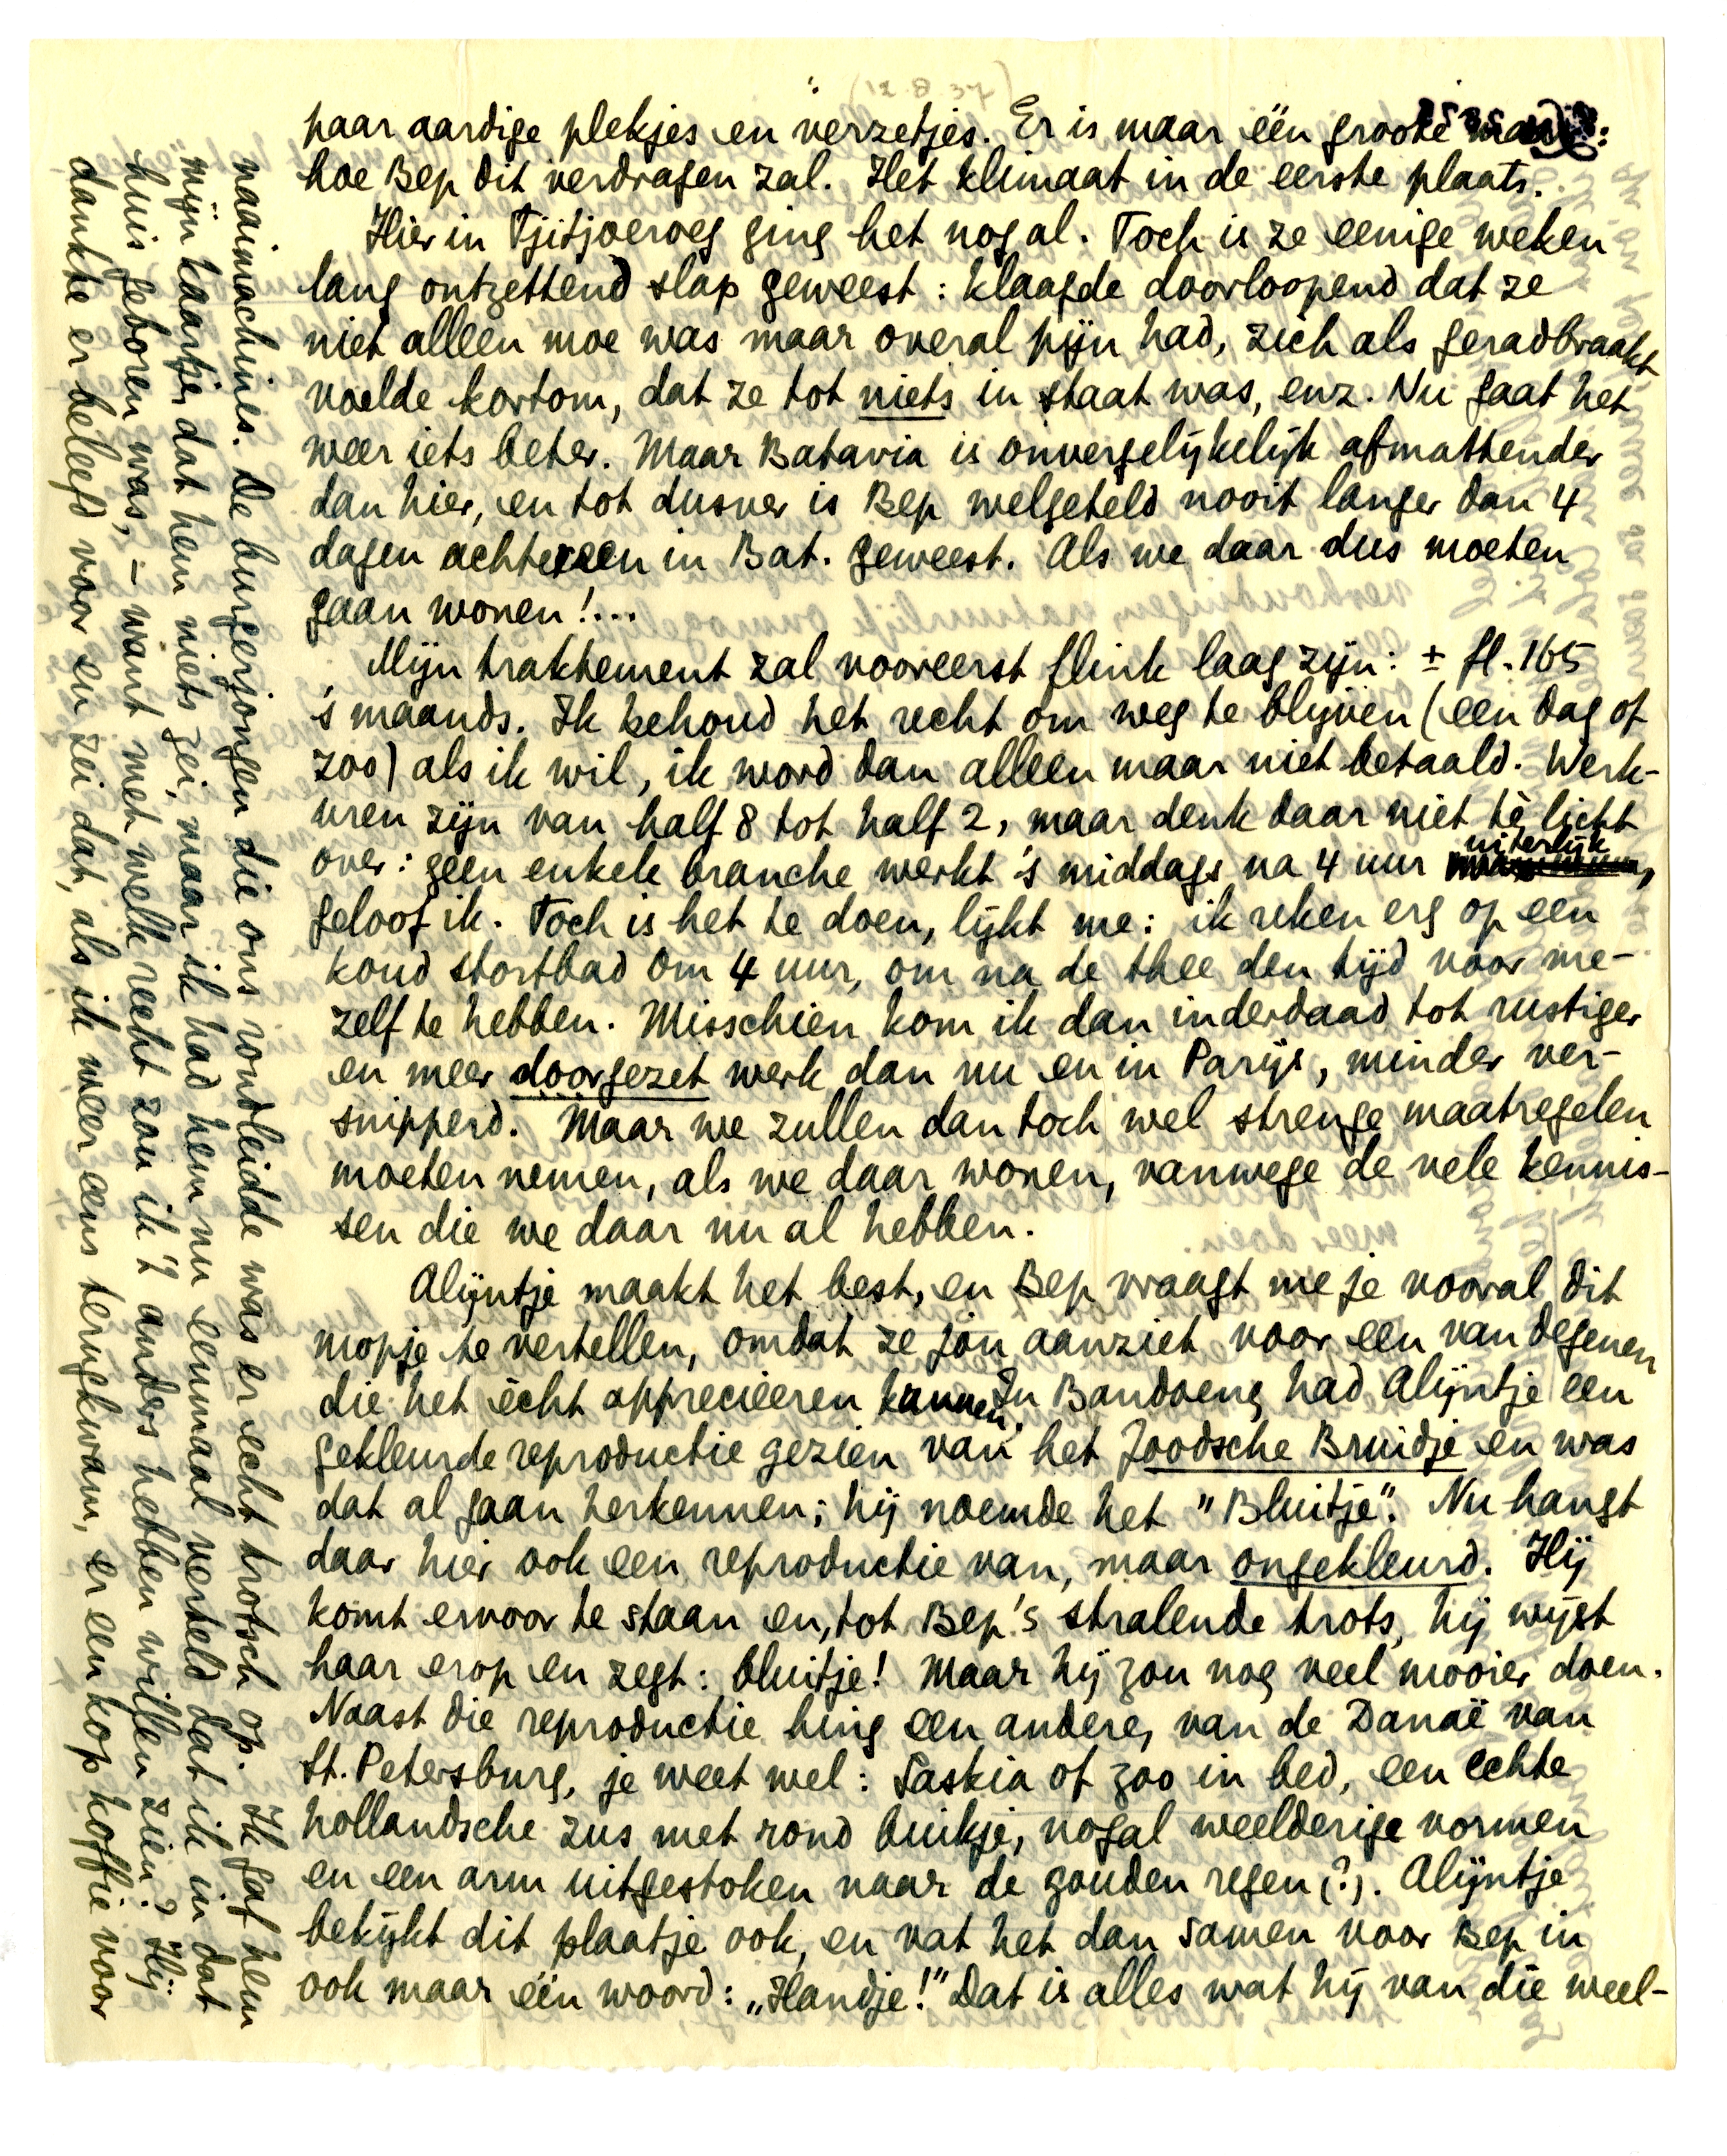 (12.8.37)
paar aardige plekjes en verzetjes. Er is maar één groote
hoe Bep dit verdragen zal. Het klimaat in de eerste plaats.
Hier in Tjitjoeroeg ging het nogal. Toch is ze eenige weken
lang ontzettend slap geweest: klaagde doorloopend dat ze
niet alleen moe was maar overal pijn had, zich als geradbraakt
voelde kortom, dat ze tot niets in staat was, enz. Nu gaat het
weer iets beter. Maar Batavia is onvergelijkelijk afmattender
dan hier, en tot dusver is Bep welgeteld nooit langer dan 4
dagen achtereen in Bat. geweest. Als we daar dus moeten
gaan wonen!...
Mijn traktement zal vooreerst flink laag zijn: ± fl. 165
's maands. Ik behoud het recht om weg te blijven (een dag of
zoo) als ik wil, ik word dan alleen maar niet betaald. Werk-
uren zijn van half 8 tot half 2, maar denk daar niet te licht
over: geen enkele branche werkt 's middags na 4 uur uiterlijk,
geloof ik. Toch is het te doen, lijkt me: ik reken erg op een
koud stortbad om 4 uur, om na de thee den tijd voor me-
zelf te hebben. Misschien kom ik dan inderdaad tot rustiger
en meer doorgezet werk dan nu en in Parijs, minder ver-
snipperd. Maar we zullen dan toch wel strenge maatregelen
moeten nemen, als we daar wonen, vanwege de vele kennis-
sen die we daar nu al hebben.
Alijntje maakt het best, en Bep vraagt me je vooral dit
mopje te vertellen, omdat ze jou aanziet voor een van degenen
die het ècht apprecieeren kunnen. In Bandoeng had Alijntje een
gekleurde reproductie gezien van het Joodsche Bruidje en was
dat al gaan herkennen; hij noemde het "Bluitje". Nu hangt
daar hier ook een reproductie van, maar ongekleurd. Hij
komt ervoor te staan en, tot Bep's stralende trots, hij wijst
haar erop en zegt: bluitje! Maar hij zou nog veel mooier doen.
Naast die reproductie hing een andere, van de Danaë van
St. Petersburg, je weet wel: Saskia of zoo in bed, een echte
hollandsche zus met rond buikje, nogal weelderige vormen
en een arm uitgestoken naar de gouden regen (?). Alijntje
bekijkt dit plaatje ook, en vat het dan samen voor Bep in
ook maar één woord: „Handje!" Dat is alles wat hij van die weel-
naaimachines. De burgerjongen die ons rondleidde was er echt trotsch op. Ik gaf hem
mijn kaartje, dat hem niets zei, maar ik had hem nu eenmaal verteld dat ik in dat
huis geboren was, - want met welk recht zou ik 't anders hebben willen zien? Hij
dankte er beleefd voor en zei dat, als ik weer eens terugkwam, er een kop koffie voor